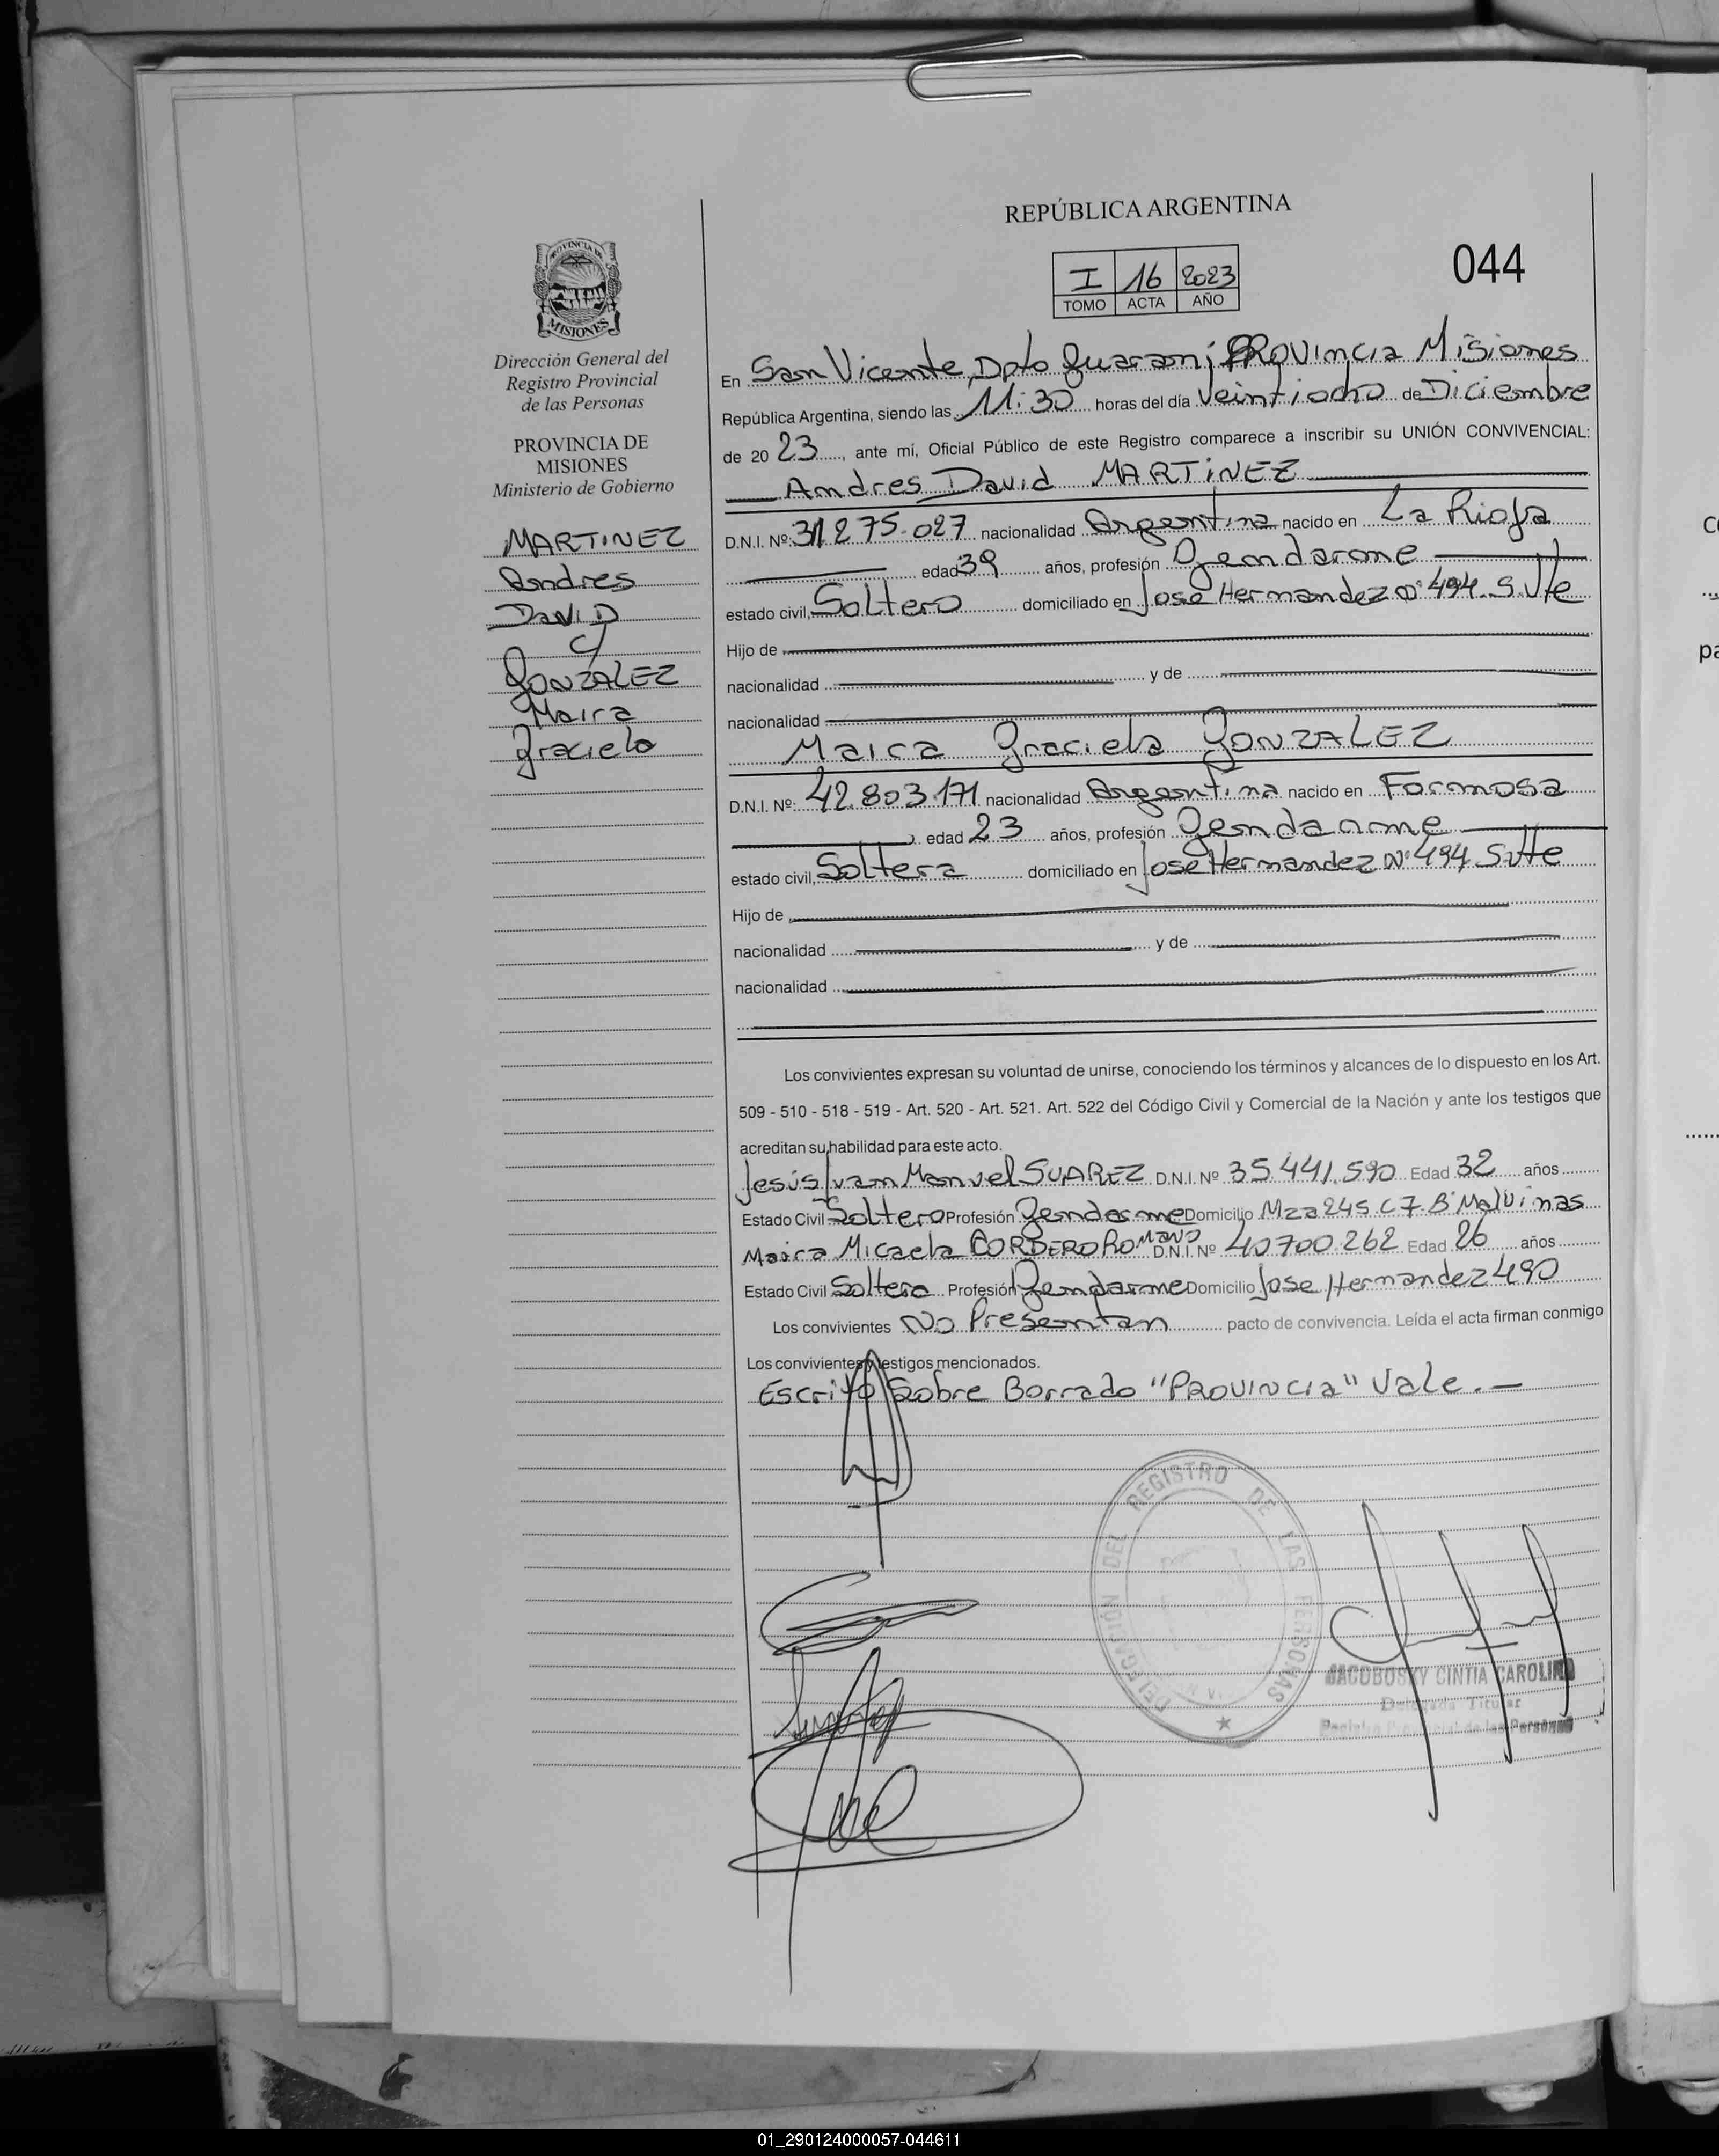 REPÚBLICA ARGENTINA
I 16 2023
TOMO ACTA AÑO
044
PROVINCIA DE
MISIONES
Dirección General del
Registro Provincial
de las Personas
PROVINCIA DE
MISIONES
Ministerio de Gobierno
MARTINEZ
Andres
DAVID
y
GONZALEZ
Maira
Graciela
En San Vicente, Dpto Guarani, PROVINCIA Misiones
República Argentina, siendo las 11:30 horas del día Veintiocho de Diciembre
de 2023, ante mí, Oficial Público de este Registro comparece a inscribir su UNIÓN CONVIVENCIAL:
Andres David MARTINEZ
D.N.I. Nº: 31.275.027 nacionalidad Argentina nacido en La Rioja
edad 39 años, profesión Gendarme
estado civil, Soltero domiciliado en Jose Hernandez Nº 494 S. Vte
Hijo de
nacionalidad y de
nacionalidad
Maira Graciela GONZALEZ
D.N.I. Nº: 42.803.171 nacionalidad Argentina nacido en Formosa
edad 23 años, profesión Gendarme
estado civil, Soltera domiciliado en Jose Hernandez Nº 494 S. Vte
Hijo de
nacionalidad y de
nacionalidad
Los convivientes expresan su voluntad de unirse, conociendo los términos y alcances de lo dispuesto en los Art.
509 - 510 - 518 - 519 - Art. 520 - Art. 521. Art. 522 del Código Civil y Comercial de la Nación y ante los testigos que
acreditan su habilidad para este acto.
Jesús Ivan Manuel SUAREZ D.N.I. Nº 35.441.590 Edad 32 años
Estado Civil Soltero Profesión Gendarme Domicilio Mza 245 C7 Bº Malvinas
Maira Micaela CORDERO ROMANO D.N.I. Nº 40.700.262 Edad 26 años
Estado Civil Soltera Profesión Gendarme Domicilio Jose Hernandez 490
Los convivientes No Presentan pacto de convivencia. Leída el acta firman conmigo
Los convivientes y testigos mencionados.
Escrito Sobre Borrado "PROVINCIA" Vale.-
DELEGACIÓN DEL REGISTRO DE LAS PERSONAS
JACOBOSKY CINTIA CAROLINA
Delegada Titular
Registro Provincial de las Personas
01_290124000057-044611